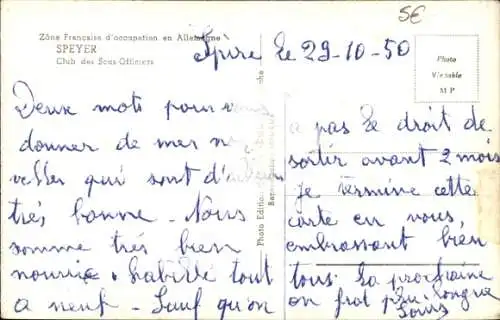 Zône Française d'occupation en Allemagne
SPEYER
Club des Sous-Officiers
5€
Spire le 29-10-50
Photo
Véritable
M P
Deux mots pour vous
donner de mes nou
velles qui sont d'ailleurs
très bonne. Nous
somme très bien
nourrie. habillé tout
a neuf. Sauf qu'on
a pas le droit de
sortir avant 2 mois
je termine cette
carte en vous,
embrassant bien
tous. La prochaine
on frat plu longue
Louis
Photo Edition